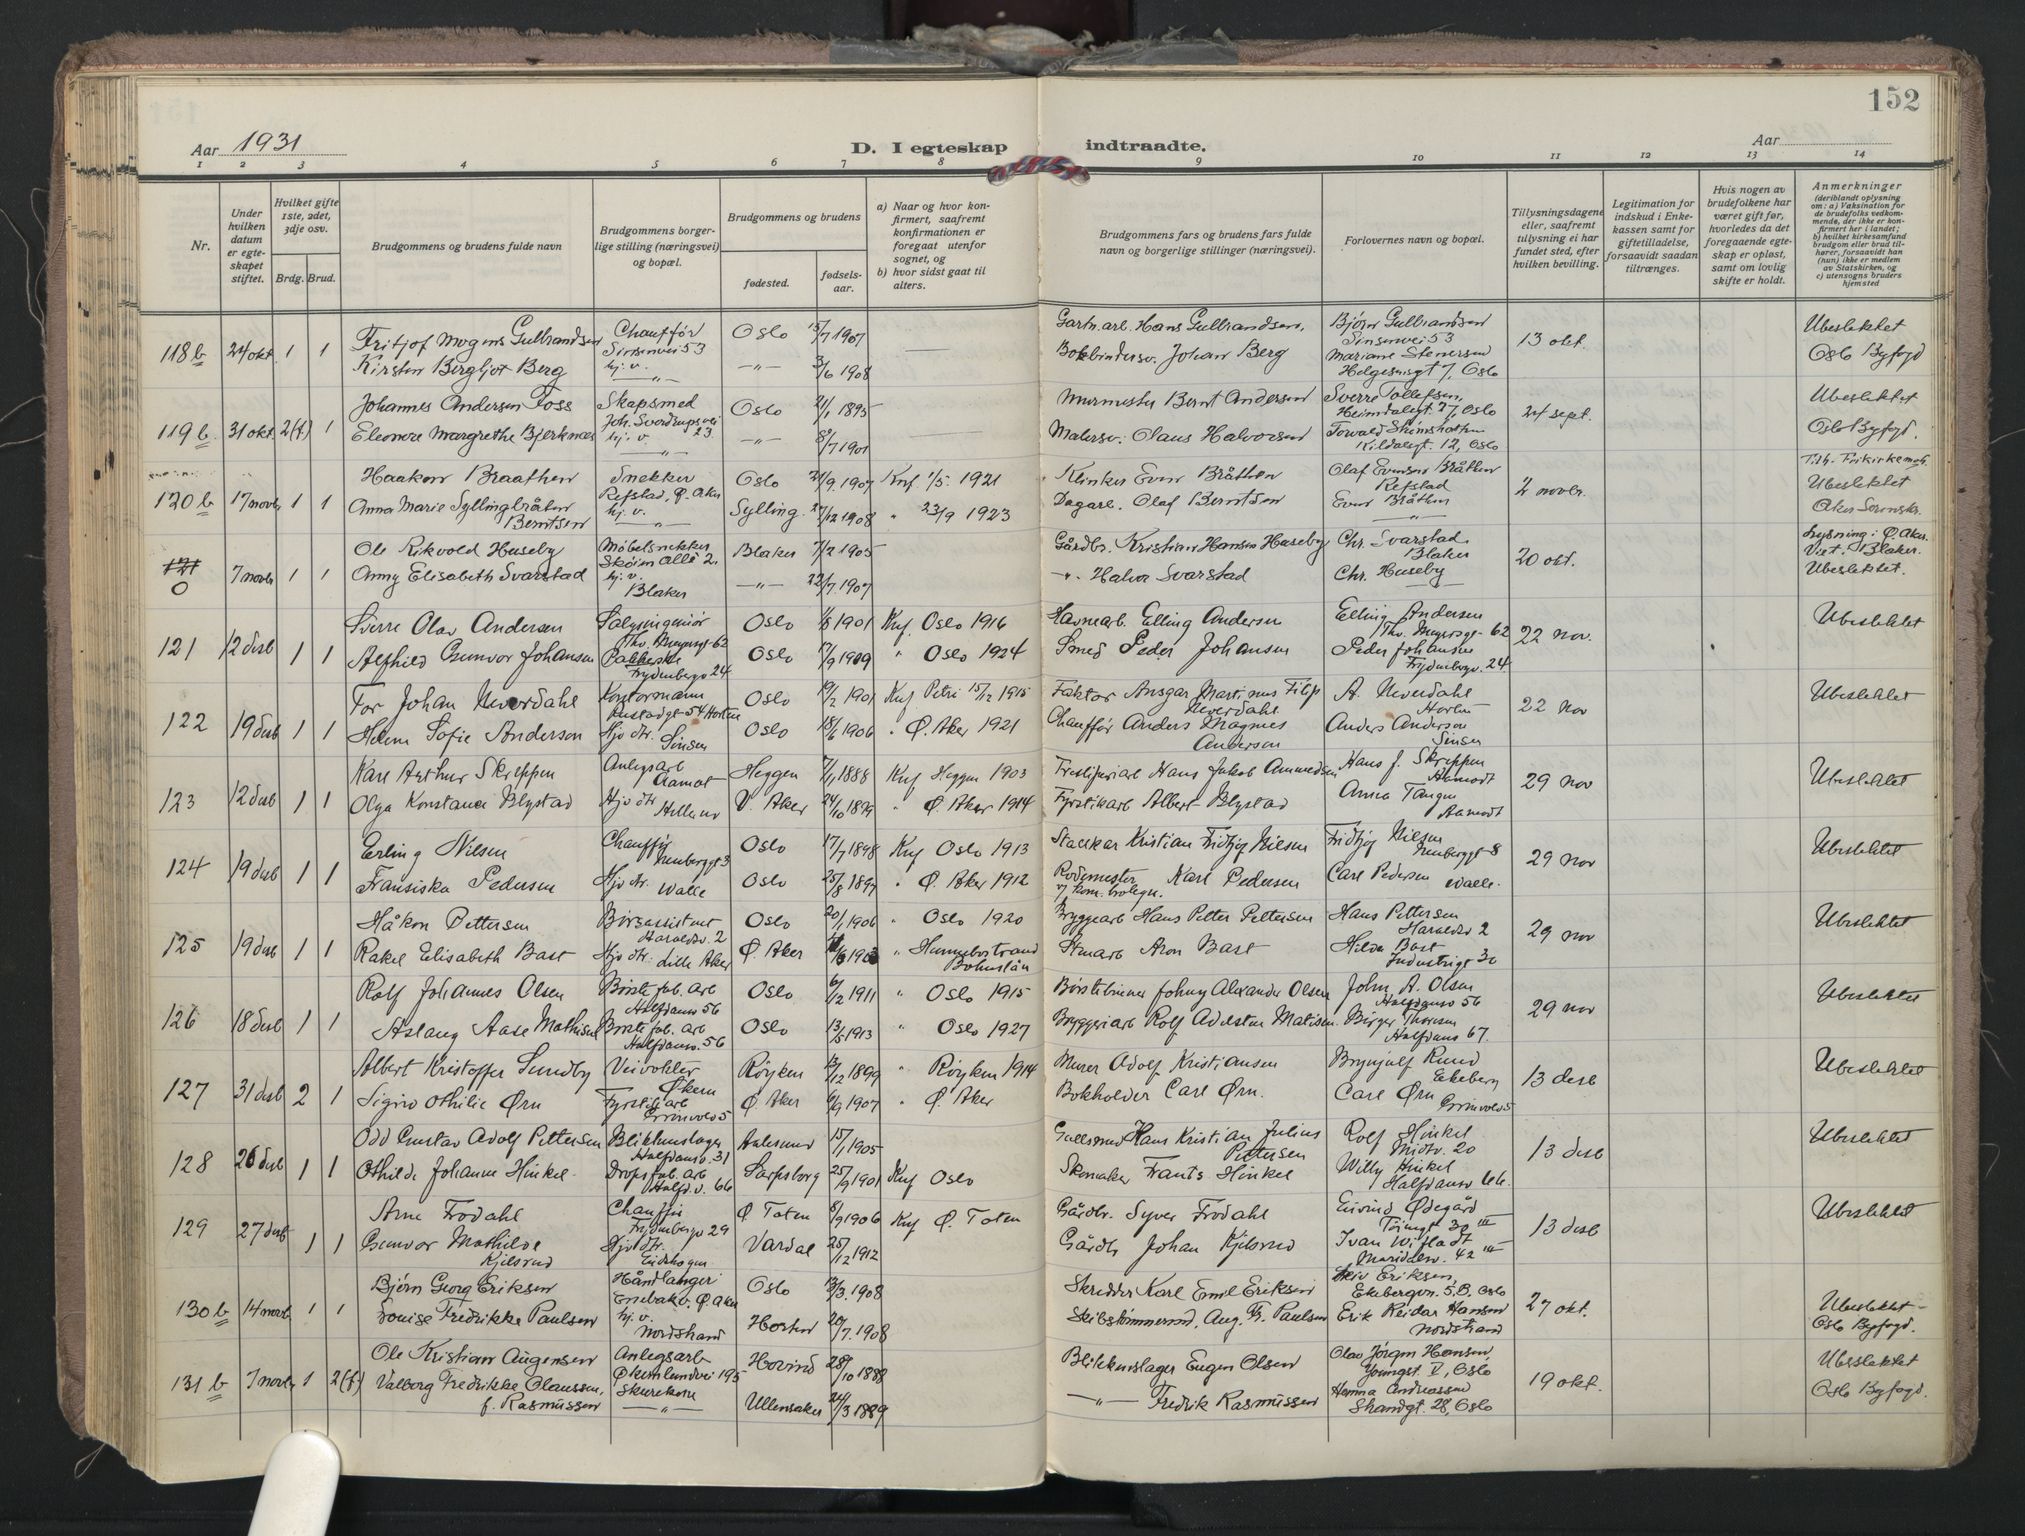 152
Aar 1931
D. I egteskap indtraadte.
Aar
1 2 3 4 5 6 7 8 9 10 11 12 13 14
Nr.
Under hvilken datum er egteskapet stiftet.
Hvilket gifte 1ste, 2det, 3dje osv.
Brdg. Brud.
Brudgommens og brudens fulde navn
Brudgommens borgerlige stilling (næringsvei) og bopæl.
Brudgommens og brudens
fødested.
fødselsaar.
a) Naar og hvor konfirmert, saafremt konfirmationen er foregaat utenfor sognet, og
b) hvor sidst gaat til alters.
Brudgommens fars og brudens fars fulde navn og borgerlige stillinger (næringsvei).
Forlovernes navn og bopæl.
Tillysningsdagene eller, saafremt tillysning ei har fundet sted, efter hvilken bevilling.
Legitimation for indskud i Enkekassen samt for giftetilladelse, forsaavidt saadan tiltrænges.
Hvis nogen av brudefolkene har været gift før, hvorledes da det foregaaende egteskap er opløst, samt om lovlig skifte er holdt.
Anmerkninger (deriblandt oplysning om: a) Vaksination for de brudefolks vedkommende, der ikke er konfirmert her i landet; b) hvilket kirkesamfund brudgom eller brud tilhører, forsaavidt han (hun) ikke er medlem av Statskirken, og c) utensogns bruders hjemsted
118b 24 okt. 1 1 Fritjof Mogens Gulbrandsen Chauffør Sinsenvei 53 Oslo 15/7 1907 — Gartn.arb. Hans Gulbrandsen, Bjørn Gulbrandsen Sinsenvei 53 13 okt. Ubeslektet
Kirsten Bergljot Berg hj. v. —"— —"— 3/6 1908 Bokbindersv. Johan Berg Mariane Stenersen Helgesensgt 7, Oslo Oslo Byfogd
119b 31 okt. 2(f) 1 Johannes Andersen Foss Skapsmed Joh. Sverdrupsvei 23 Oslo 21/1 1895 — Murmester Bernt Andersen Sverre Tollefsen, Heimdalsgt. 27, Oslo 24 sept. Ubeslektet
Eleonore Margrethe Bjerknæs hj. v. —"— —"— 8/7 1901 Malersv. Olaus Halvorsen Kildalsgt. 12, Oslo Oslo Byfogd.
120b 17 novbr 1 1 Haakon Braathen Snekker Refstad, Ø. Aker Oslo 24/9. 1907 Knf 1/5. 1921 Klinker Even Bråthen Olaf Evensen Bråthen Refstad 2 novbr. Tilh. Frikirkemgh. Ubeslektet
Anna Marie Syllingbråten Berntsen hj. v. —"— Sylling. 27/12 1908 " 23/9 1923 Dagarb. Olaf Berntsen Even Bråthen —"— Aker Sorenskr.
121 0 7 novbr 1 1 Ole Rikvold Huseby Møbelsnekker Skøien Allé 2. Blaker 7/2 1905 Gårdbr. Kristian Hansen Huseby Chr. Svarstad Blaker 20 okt. Lysning i Ø. Aker. Viet i Blaker.
Anny Elisabeth Svarstad hj. v. Blaker —"— 22/7. 1907 —"— Halvor Svarstad Chr. Huseby —"— Ubeslektet.
121 12 desb 1 1 Sverre Olav Andersen Salgsingeniør Thv. Meyersgt 62 Oslo 1/8 1901 Knf. Oslo 1916 Havnearb. Elling Andersen Elling Andersen Thv. Meyersgt 62 22 nov. Ubeslektet
Alfhild Gunvor Johansen Pakkerske Frydenbergv 24 Oslo 17/9 1909 " Oslo 1924 Smed Peder Johansen Peder Johansen Frydenbergv. 24
122 19 desb 1 1 Tor Johan Neverdahl Kontormann Rustadgt 54 Horten Oslo 19/2 1901 Knf Petri 15/12 1915 Faktor Ansgar Martinus Filip Neverdahl A. Neverdahl Horten 22 nov Ubeslektet
Helene Sofie Anderson Hjv dtr. Sinsen Oslo 18/6 1906 " Ø. Aker 1921 Chauffør Anders Magnus Anderson Anders Anderson Sinsen
123 12 desb 1 1 Karl Arthur Skreppen Anlegsarb Aamot Heggen 7/1 1888 Knf Heggen 1903 Træsliperiarb Hans Jakob Ammundsen Hans J. Skreppen Aamodt 29 nov Ubeslektet
Olga Konstance Blystad Hjv dtr V. Aker 24/10 1899 " Ø. Aker 1914 Fyrstikarb Albert Blystad Anna Tangen Aamodt
124 19 desb 1 1 Erling Nilsen Chauffør Oslo 17/7 1898 Knf Oslo 1913 Kristian Fridtjof Nilsen Fridtjof Nilsen 29 nov Ubeslektet
Fransiska Pedersen Hjv dtr. Valle Oslo 25/8 1897 " Ø. Aker 1912 Rodemester v/ kom. boligv. Karl Pedersen Carl Pedersen Valle.
125 19 desb 1 1 Håkon Pettersen Børsassistent Haraldsv. 2 Oslo 20/1 1906 " Oslo 1920 Bryggearb Hans Petter Pettersen Hans Pettersen Haraldsv 2 29 nov Ubeslektet
Rakel Elisabeth Bast Hjv dtr. Lille Aker Ø. Aker 1903 " Hunnebostrand Bohuslän Stenarb Aron Bast Hilda Bast Industrigt 30
126 18 desb 1 1 Rolf Johannes Olsen Børstefab. arb Halfdansv 56 Oslo 6/12 1911 " Oslo 1915 Børstebinder Johny Alexander Olsen John A. Olsen Halfdansv 56 29 nov Ubeslektet
Aslaug Aase Mathisen Børstefab. arb Halfdansv. 56 Oslo 13/5 1913 " Oslo 1927 Bryggeriarb Rolf Adelsten Matisen Birger Thoresen Halfdans 67.
127 31 desb 2 1 Albert Kristoffer Sundby Veivokter Økern Røyken 13/12 1899 " Røyken 1914 Murer Adolf Kristiansen Brynjulf Ruud Ekeberg 13 desb Ubeslektet
Sigrid Othilie Ørn Fyrstikarb Grønvold 5 Ø. Aker 6/9 1907 " Ø. Aker Bokholder Carl Ørn. Carl Ørn Grønvold 5
128 26 desb 1 1 Odd Gustav Adolf Pettersen Blikkenslager Halfdansv. 31 Aalesund 15/1 1905 Gullsmed Hans Kristian Julius Pettersen Rolf Hinkel Midtv. 20 13 desb Ubeslektet
Othilde Johanne Hinkel. Dropsfab. arb Halfd. v. 66 Sarpsborg 25/9 1901 Knf Oslo Skomaker Frants Hinkel Willy Hinkel Halfdansv 66.
129 27 desb 1 1 Arne Frodahl Chauffør Frydenbergv 29 Ø Toten 8/9 1906 Knf Ø. Toten Gårdbr. Syver Frodahl Eivind Ødegård Tøiengt 30 III 13 desb Ubeslektet
Gunvor Mathilde Kjelsrud Hjv dtr. Vardal 25/12 1912 Gårdb Johan Kjelsrud Ivan Wifladt Maridalsv. 42 III
130b 14 novb 1 1 Bjørn Georg Eriksen Håndlanger Enebakv. Ø. Aker Oslo 13/3. 1908 Skredder Karl Emil Eriksen Eriksen, Ekebergvn. 5, B. Oslo 27 okt. Ubeslektet
Louise Fredrikke Paulsen hj. v. Nordstrand Horten 20/7. 1908 Skibstømmermd. Aug. Fr. Paulsen Erik Reidar Hansen Nordstrand Oslo Byfogd.
131b 7 novbr 1 2(f) Ole Kristian Augensen Anlegsarb Økernlundvei 195 Hovind 28/10 1888 Blikkenslager Eugen Olsen Olav Jørgen Hansen Youngst. V, Oslo 19 okt. Ubeslektet
Valborg Fredrikke Olaussen, f. Rasmussen Skurekone —"— Ullensaker 24/3 1889 —"— Fredrik Rasmussen Hanna Andreassen Strandgt. 28, Oslo Oslo Byfogd.